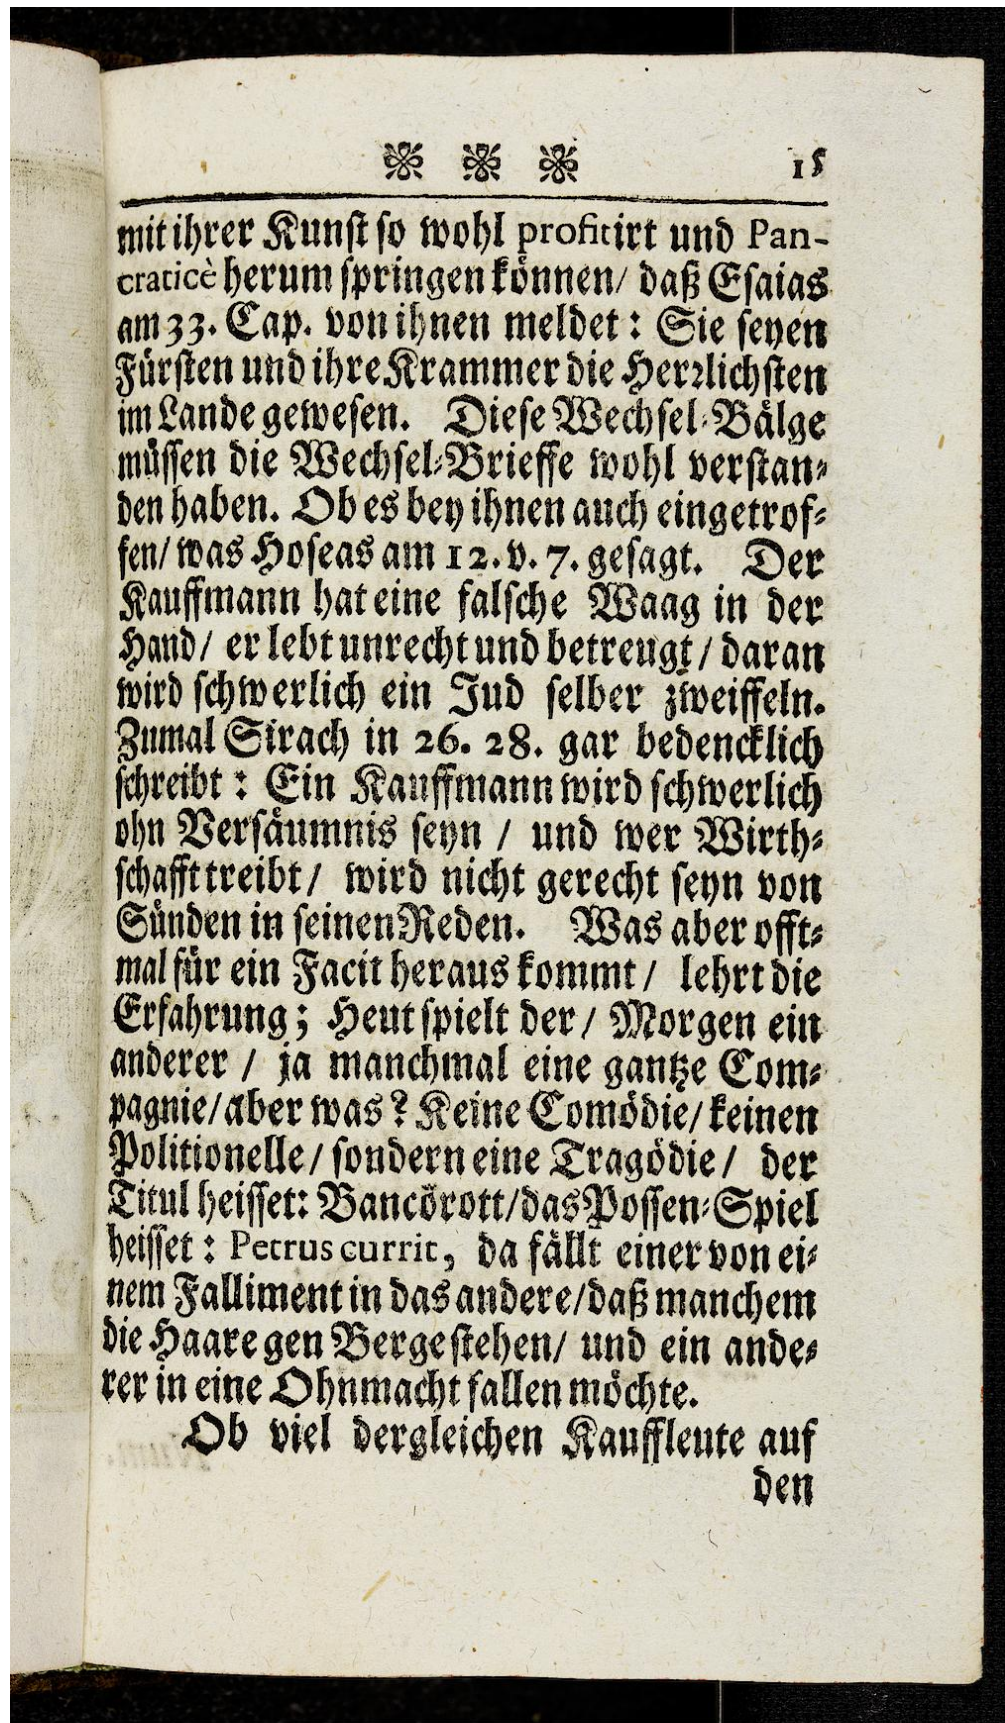 15
mit ihrer Kunst so wohl profitirt und Pan-
craticè herum springen können/ daß Esaias
am 33. Cap. von ihnen meldet: Sie seyen
Fürsten und ihre Krammer die Herrlichsten
im Lande gewesen. Diese Wechsel-Bälge
müssen die Wechsel-Brieffe wohl verstan-
den haben. Ob es bey ihnen auch eingetrof-
fen/ was Hoseas am 12. v. 7. gesagt. Der
Kauffmann hat eine falsche Waag in der
Hand/ er lebt unrecht und betreugt/ daran
wird schwerlich ein Jud selber zweiffeln.
Zumal Sirach in 26. 28. gar bedencklich
schreibt: Ein Kauffmann wird schwerlich
ohn Versäumnis seyn / und wer Wirth-
schafft treibt/ wird nicht gerecht seyn von
Sünden in seinen Reden. Was aber offt-
mal für ein Facit heraus kommt/ lehrt die
Erfahrung; Heut spielt der/ Morgen ein
anderer / ja manchmal eine gantze Com-
pagnie/ aber was? Keine Comödie/ keinen
Politionelle/ sondern eine Tragödie/ der
Titul heisset: Bancörott/ das Possen-Spiel
heisset: Petrus currit, da fällt einer von ei-
nem Falliment in das andere/ daß manchem
die Haare gen Berge stehen/ und ein ande-
rer in eine Ohnmacht fallen möchte.
Ob viel dergleichen Kauffleute auf
den